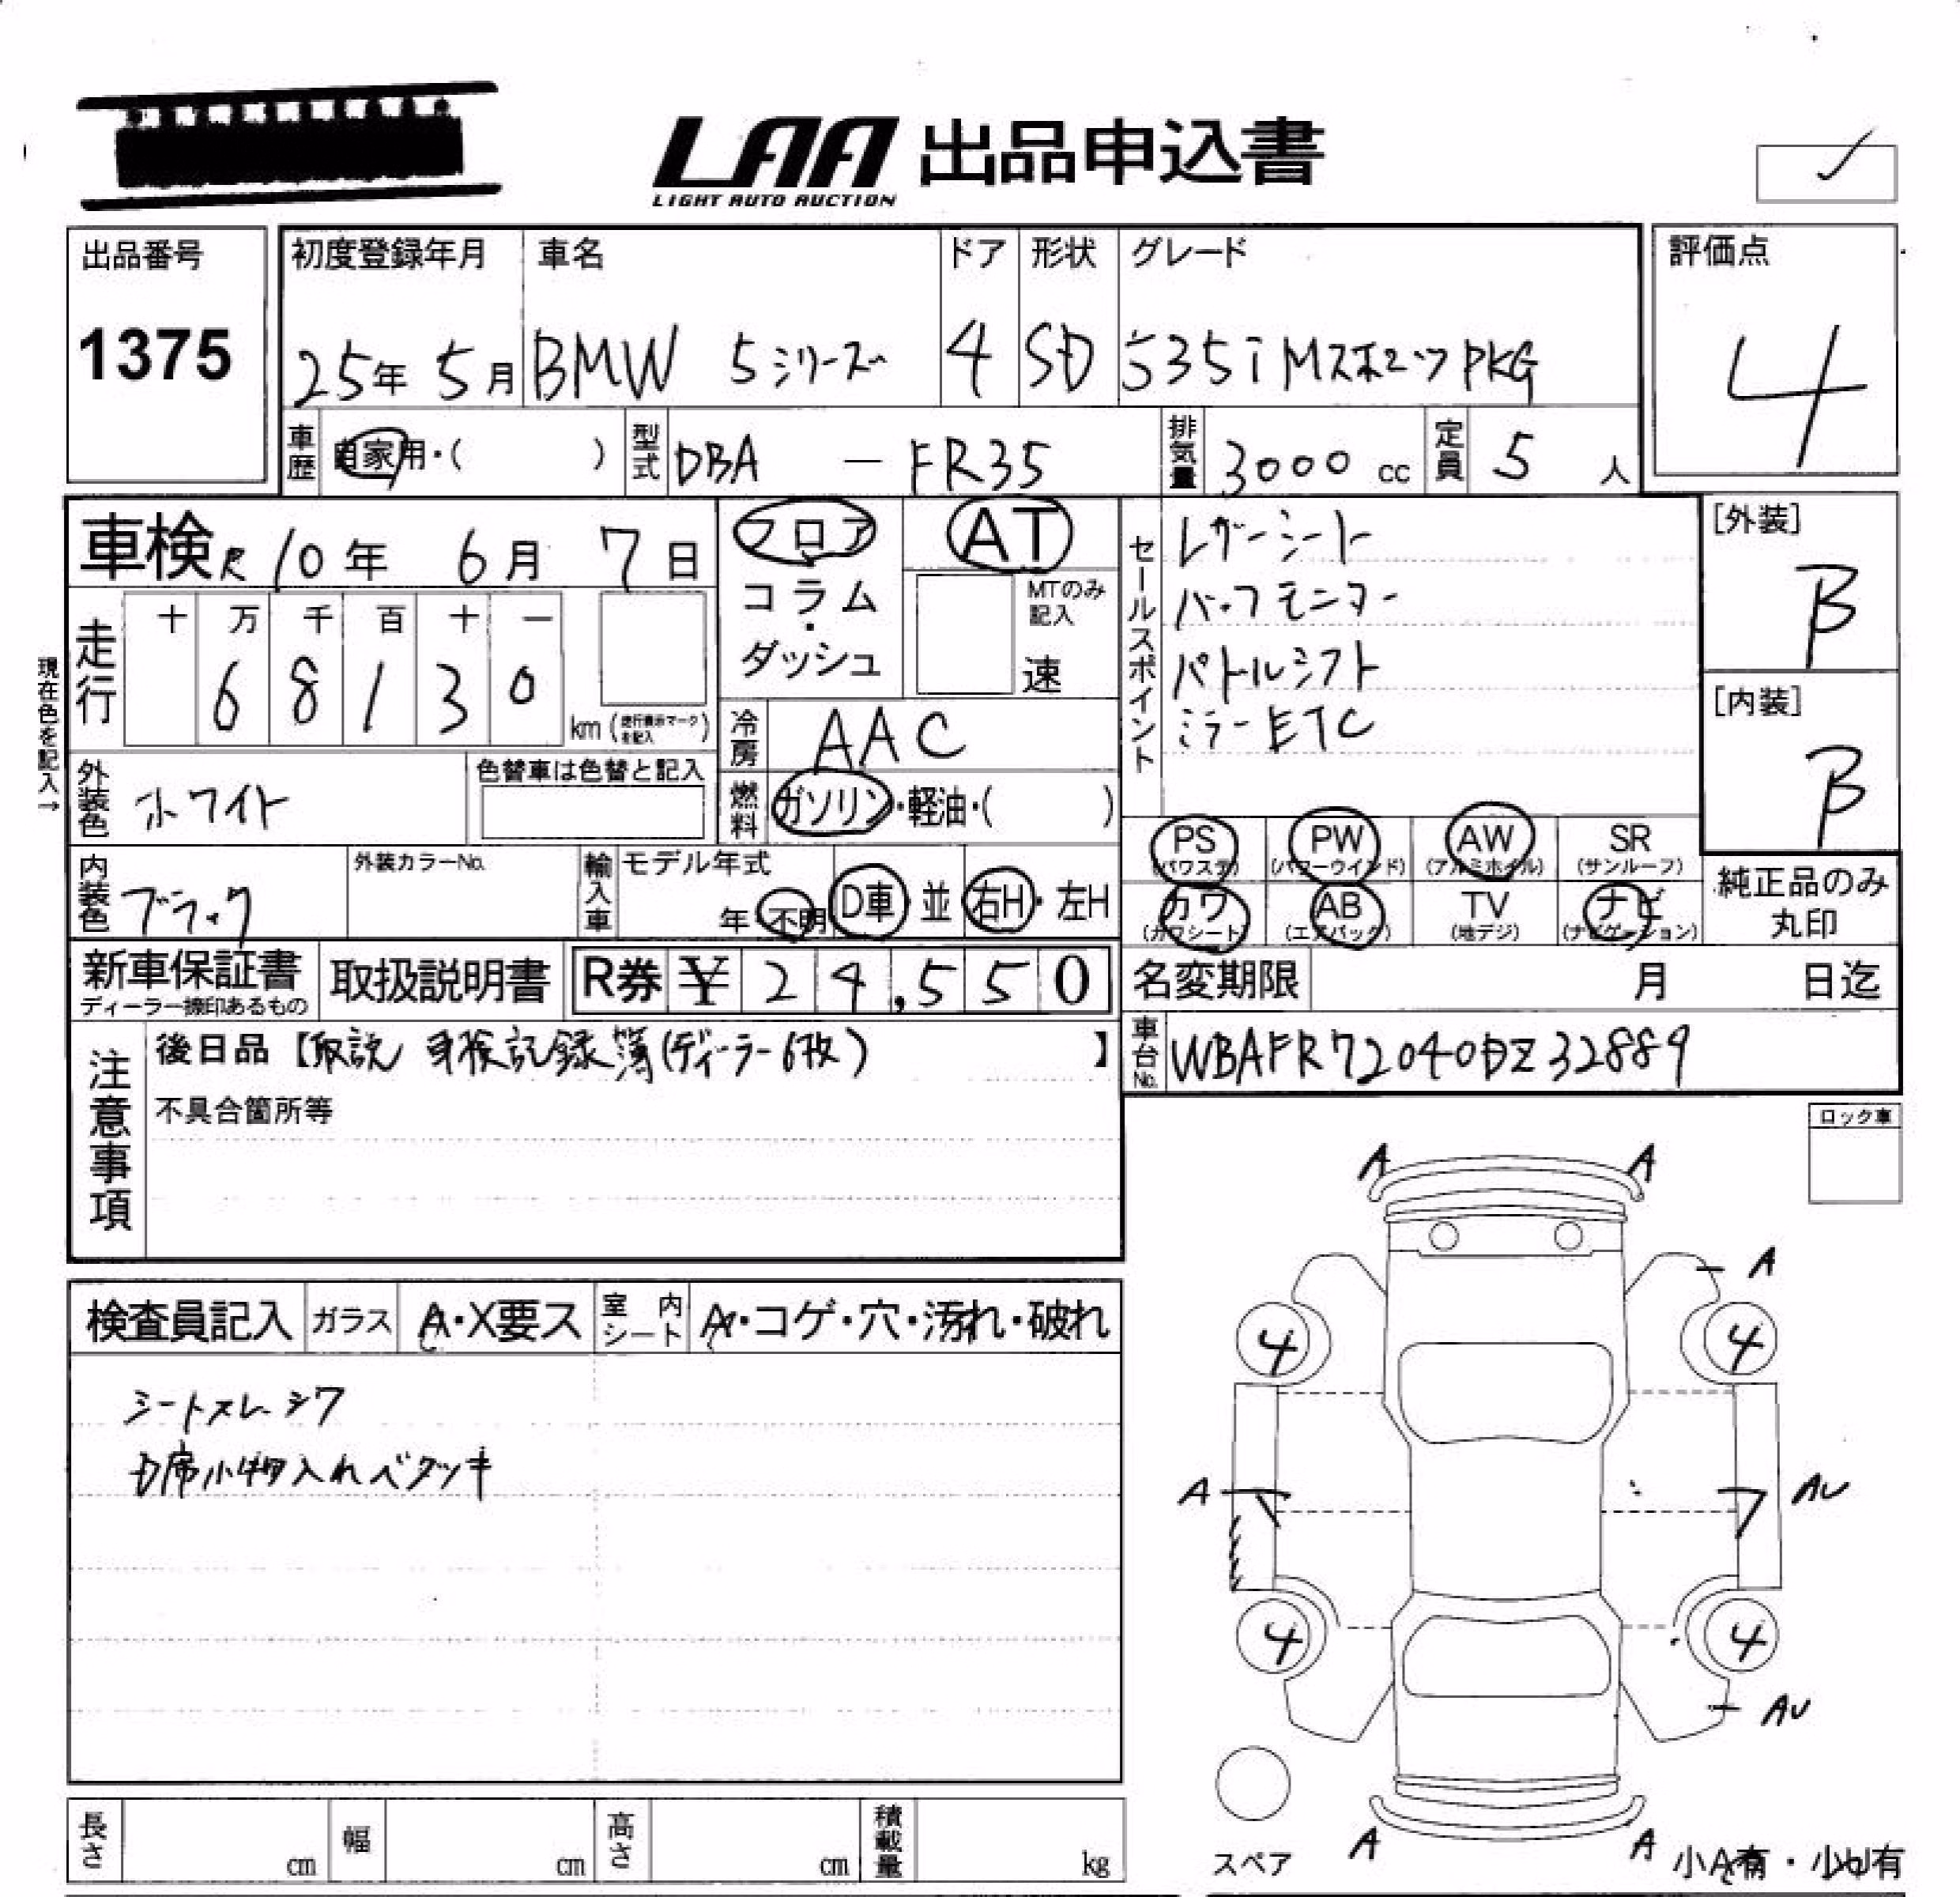 LAA 出品申込書
LIGHT AUTO AUCTION
出品番号
1375
初度登録年月
25年 5月
車名
BMW 5シリーズ
ドア
4
形状
SD
グレード
535i Mスポーツ PKG
評価点
4
車歴
自家用・( )
型式
DBA — FR35
排気量
3000 cc
定員
5 人
車検 R10年 6月 7日
走行
十 万 千 百 十 一
6 8 1 3 0
km (走行表示マークを記入)
現在色を記入→
外装色
ホワイト
色替車は色替と記入
内装色
ブラック
外装カラーNo.
フロア
コラム
・
ダッシュ
AT
MTのみ
記入
速
冷房
AAC
燃料
ガソリン・軽油・( )
輸入車
モデル年式
年・不明
D車・並
右H・左H
セールスポイント
レザーシート
バックモニター
パドルシフト
ミラーETC
[外装]
B
[内装]
B
PS (パワステ)
PW (パワーウインド)
AW (アルミホイル)
SR (サンルーフ)
カワ (カワシート)
AB (エアバック)
TV (地デジ)
ナビ (ナビゲーション)
純正品のみ
丸印
新車保証書
ディーラー捺印あるもの
取扱説明書
R券 ¥ 24,550
名変期限 月 日迄
車台No.
WBAFR72040DZ32889
注意事項
後日品【取説 車検記録簿(ディーラー6枚) 】
不具合箇所等
ロック車
検査員記入
ガラス
A・X要ス
室内シート
A・コゲ・穴・汚れ・破れ
シートスレ シワ
D席小物入れベタツキ
A A
A
4 4
A AU
4 4
AU
スペア
A A
小A有・小U有
長さ cm
幅 cm
高さ cm
積載量 kg